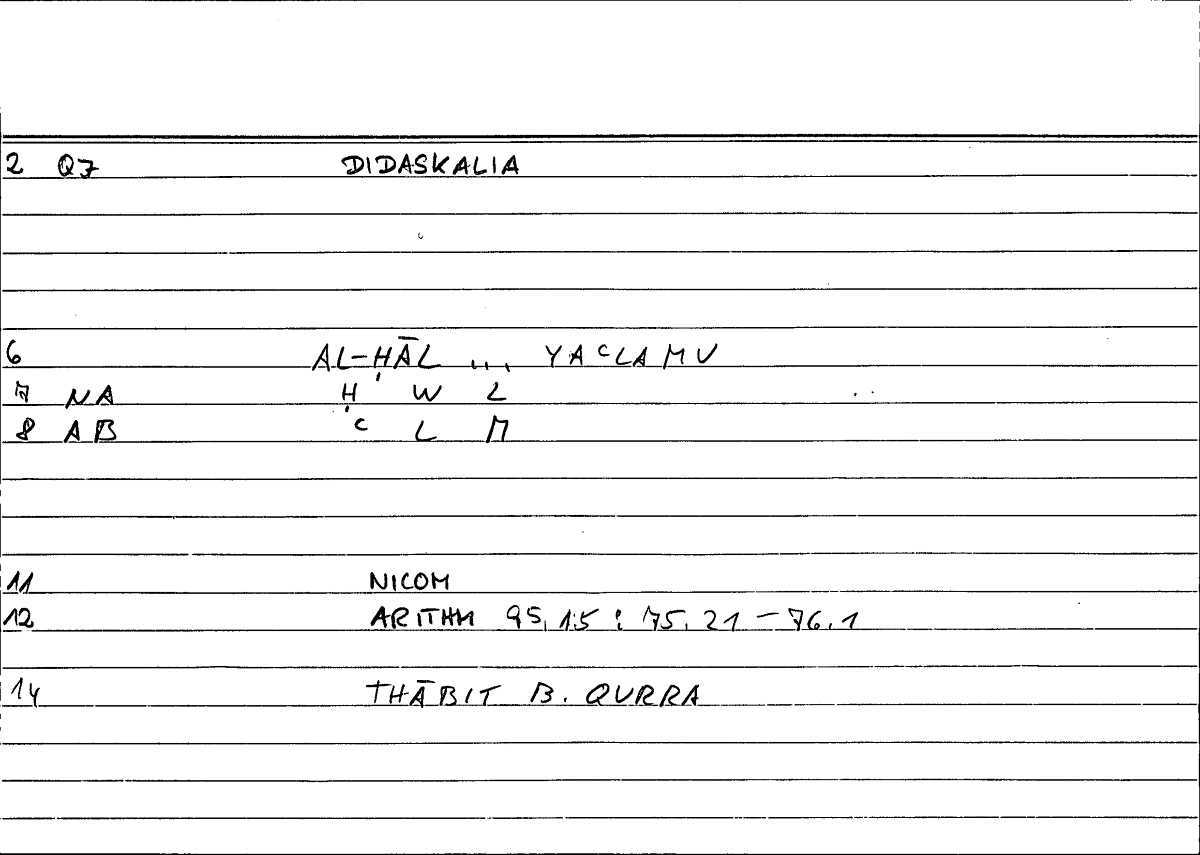 2 Q7 DIDASKALIA
6 AL-ḤĀL ... YAʿLAMU
7 NA Ḥ W L
8 AB ʿ L M
11 NICOM
12 ARITHM 95,15 : 75,21 – 76.1
14 THĀBIT B. QURRA